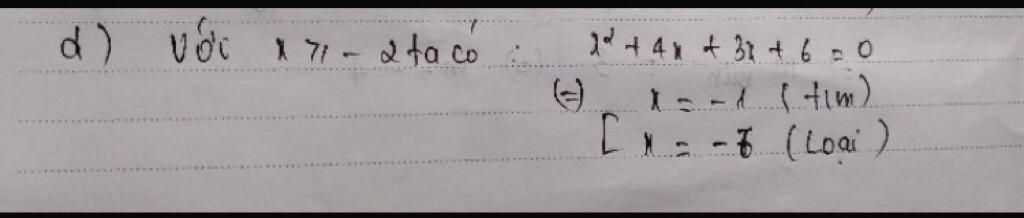 d) Với x ≥ -2 ta có : x² + 4x + 3x + 6 = 0
(=) x = -1 (tm)
[ x = -6 (Loại)